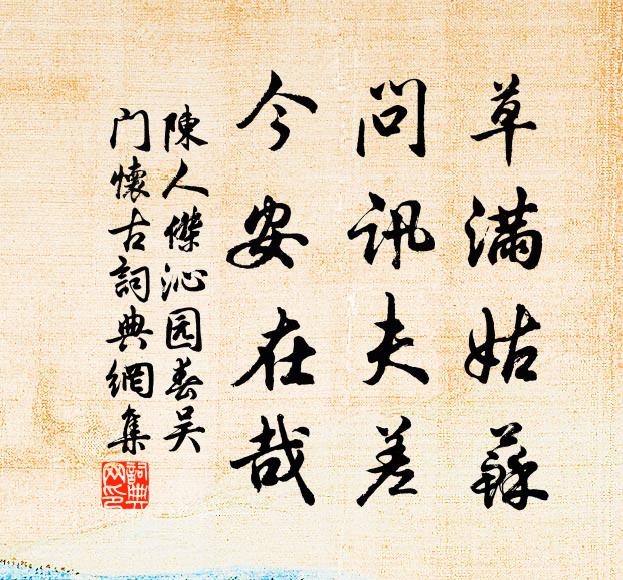 草满姑蘇
问讯夫差
今安在哉
陳人傑沁园春吴
门懷古詞典網集
詞典
网印